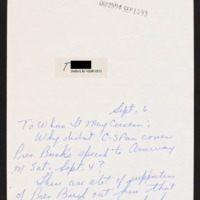 002994 SEP 1593
T
Sept. 6
To Whom It May Concern:
Why didnt C-Span cover
Pres Bush's speech to Amway
on Sat. Sept. 4?
There are a lot of supporters
of Pres Bush out here that